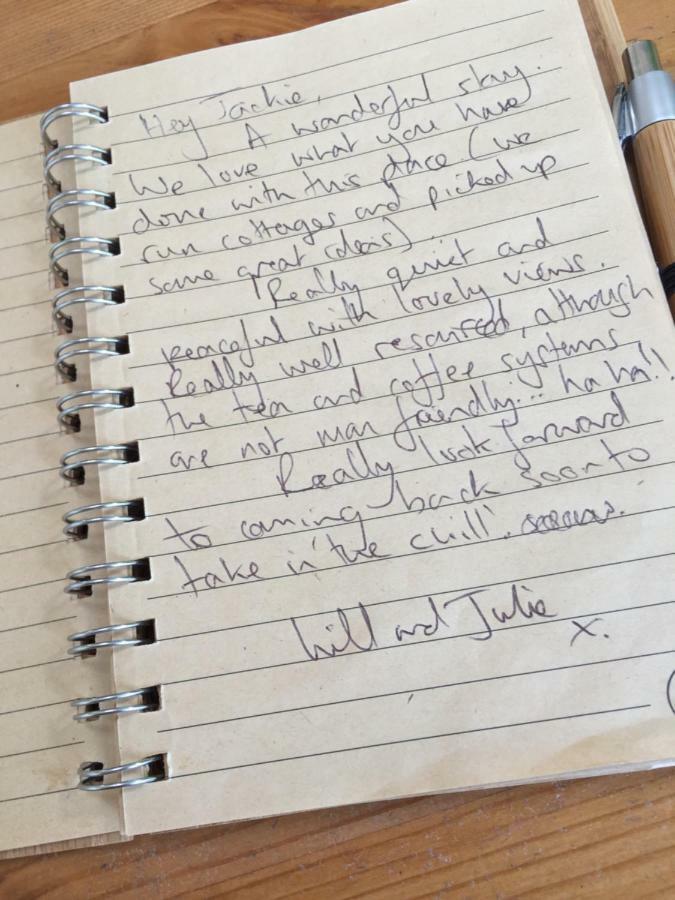 Hey Jackie,
A wonderful stay.
We love what you have
done with this place (we
run cottages and picked up
some great ideas)
Really quiet and
peaceful with lovely views.
Really well resourced, although
the tea and coffee systems
are not man friendly... ha ha!!
Really look forward
to coming back soon to
take in 'the chill'.
Will and Julie
x.